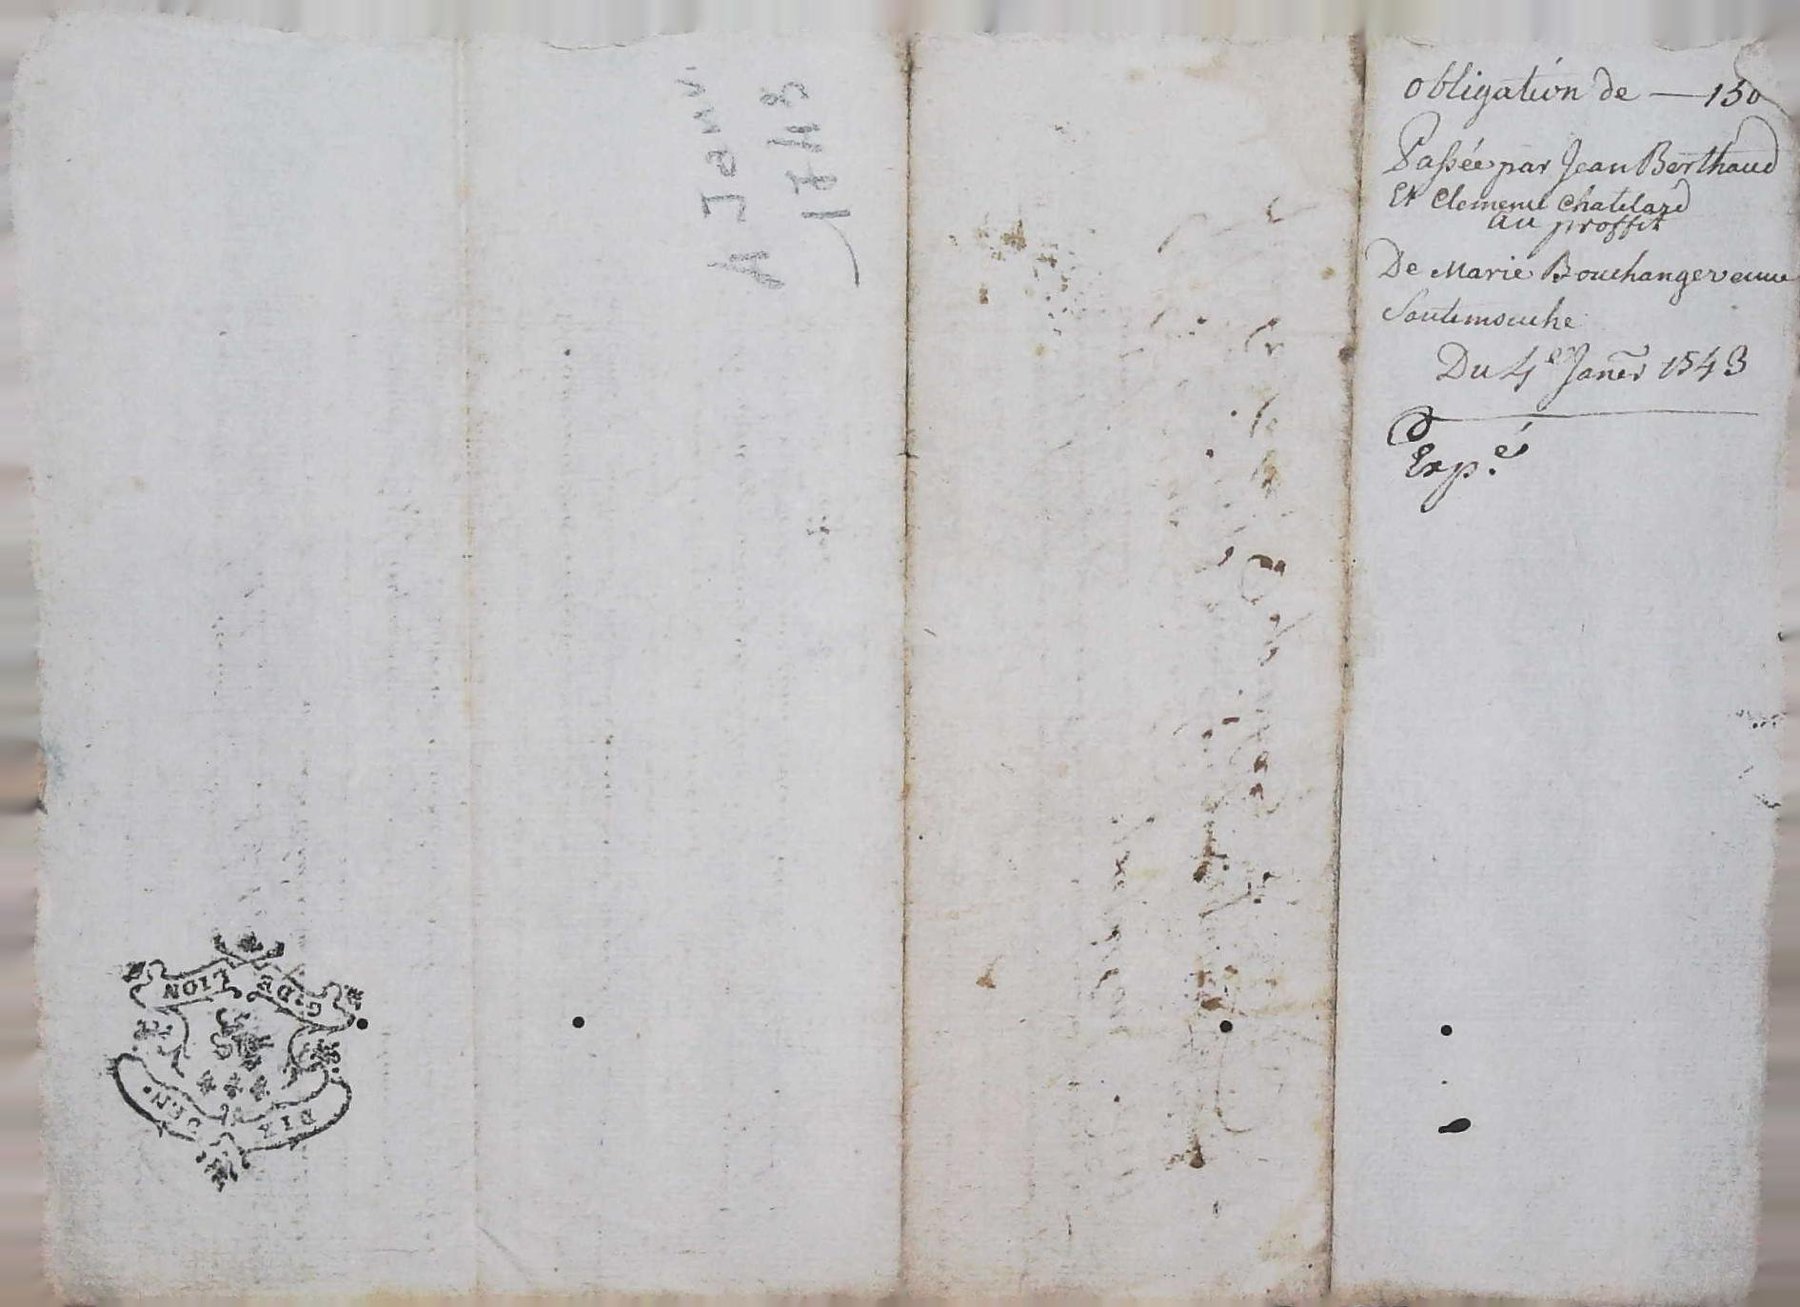 obligation de — 150
Passée par Jean Berthaud
Et Clemence Chatelard
au proffit
De Marie Bouchanger veuve
Sautemouche
Du 4e Janer 1743
Expé
A Janv.
1743
G. DE LION
DIX DEN.